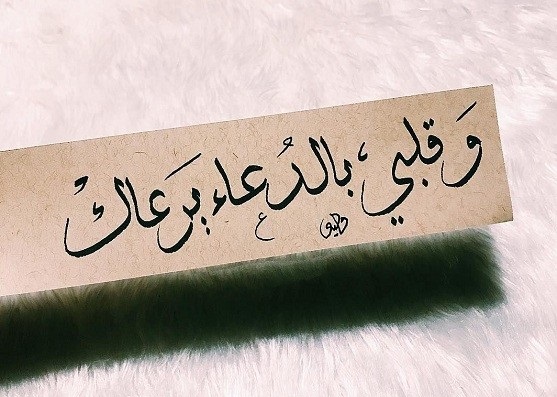 وَ قلبي، بالدُعاء يَرعاكْ